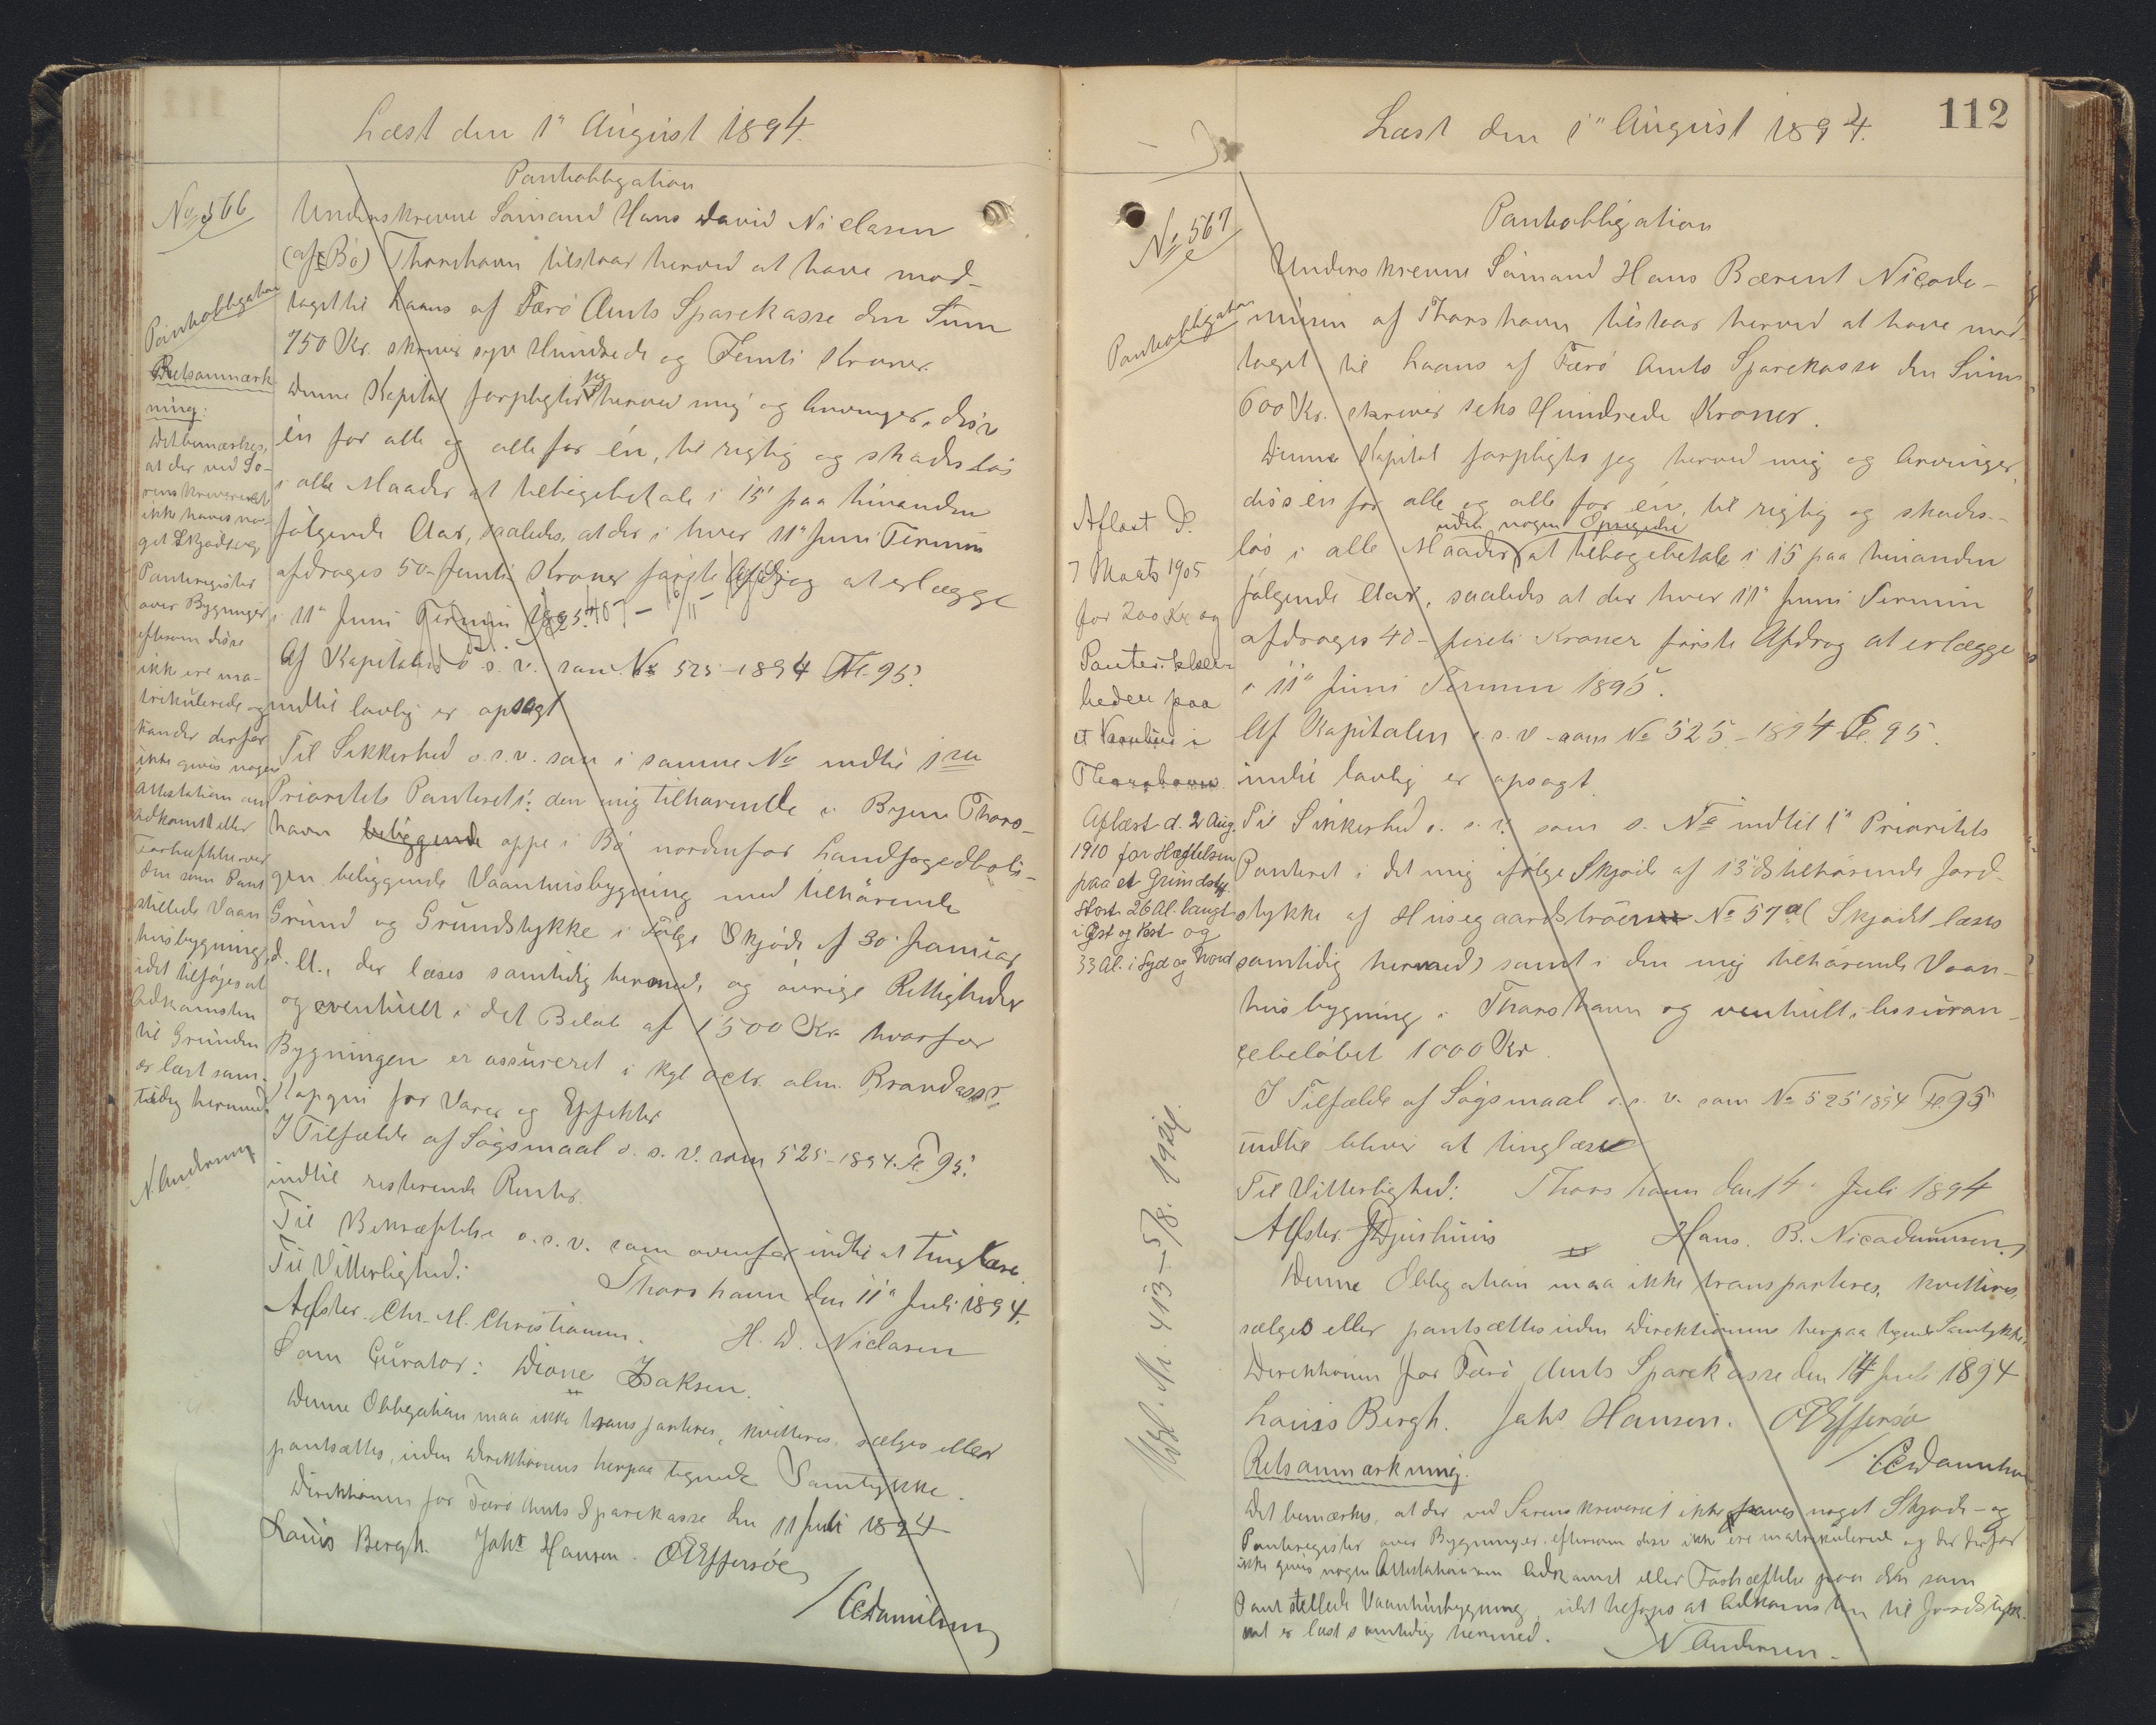 Læst den 1" August 1894.
Pantobligation
No 566
Pantobligation
Underskrevne Sømand Hans David Niclasen
(af Bø) Thorshavn tilstaar herved at have mod-
taget til Laans af Færø Amts Sparekasse den Sum
750 Kr. skriver syv Hundrede og Femti Kroner.
Denne Kapital forpligter jeg herved mig og Arvinger, disse
én for alle og alle for én, til rigtig og skadesløs
i alle Maader at tilbagebetale i 15 paa hinanden
følgende Aar, saaledes, at der i hver 11" Juni Termin
afdrages 50 - femti Kroner første Afdrag at erlægge
i 11" Juni Termin 1895.
Af Kapitalen o. s. v. som No 525 - 1894 Fl. 95.
indtil lovlig er opsagt
Til Sikkerhed o. s. v. som i samme No indtil 1ste
Prioritets Panteret i: den mig tilhørende i Byen Thors-
havn beliggende oppe i Bø nordenfor Landfogedboli-
gen beliggende Vaanhusbygning med tilhørende
Grund og Grundstykke i Følge Skjøde af 30 Januar
d. A., der læses samtidig hermed, og øvrige Rettigheder
og eventuelt i det Beløb af 1500 Kr. hvorfor
Bygningen er assureret i Kgl octr. alm. Brandass.
Kompgni for Varer og Effekter
I Tilfælde af Søgsmaal o. s. v. som 525 - 1894. Fl. 95.
indtil resterende Renter.
Til Bekræftelse o. s. v. som ovenfor indtil at tinglæse.
Til Vitterlighed: Thorshavn den 11" Juli 1894.
Aflster. Chr. M. Christiansen. H. D. Niclasen
Som Curator: Dione Isaksen.
Denne Obligation maa ikke transporteres, kvitteres, sælges eller
pantsættes, uden Direktionens herpaa tegnede Samtykke.
Direktionen for Færø Amts Sparekasse den 11 Juli 1894
Louis Bergh. Johs Hansen. OEffersøe
/ CDanielsen
Retsanmærk-
ning:
Det bemærkes,
at der ved So-
renskriveriet
ikke haves no-
get Skjøde og
Panteregister
over Bygninger
eftersom disse
ikke ere ma-
trikulerede og
kan der derfor
ikke gives nogen
Attestation om
Adkomst eller
Forhæftelser ved
den som Pant
stillede Vaan
husbygning,
idet tilføjes at
Adkomsten
til Grunden
er læst sam-
tidig hermed.
N. Andersen
Læst den 1" August 1894.
112
Pantobligation
No 567
Pantobligation
Underskrevne Sømand Hans Bærent Nicode-
mussen af Thorshavn tilstaar herved at have mod-
taget til Laans af Færø Amts Sparekasse den Sum
600 Kr. skriver seks Hundrede Kroner.
Denne Kapital forpligter jeg herved mig og Arvinger,
disse én for alle og alle for én, til rigtig og skades-
uden nogen Opsigelse
løs i alle Maader at tilbagebetale i 15 paa hinanden
følgende Aar, saaledes at der hver 11" Juni Termin
afdrages 40 - fireti Kroner første Afdrag at erlægge
i 11" Juni Termin 1895.
Af Kapitalen o. s. v. som No 525 - 1894 Fl. 95.
indtil lovlig er opsagt.
Til Sikkerhed o. s. v. som s. No indtil 1" Prioritets
Panteret i det mig ifølge Skjøde af 13 ds tilhørende Jord-
stykke af Husegaardstrøen No 57a (Skjødet læses
samtidig hermed) samt i den mig tilhørende Vaan-
husbygning i Thorshavn og eventuelt i Assuran-
cebeløbet 1000 Kr.
I Tilfælde af Søgsmaal o. s. v. som No 525 1894 Fl. 95
indtil bliver at tinglæse
Til Vitterlighed: Thorshavn den 14 Juli 1894
Aflster. JDjurhuus Hans. B. Nicodemussen.
Denne Obligation maa ikke transporteres, kvitteres,
sælges eller pantsættes uden Direktionens herpaa tegnede Samtykke.
Direktionen for Færø Amts Sparekasse den 14 Juli 1894
Louis Bergh. Johs Hansen. OEffersøe
/ CDanielsen
Retsanmærkning.
Det bemærkes, at der ved Sorenskriveriet ikke haves noget Skjøde- og
Panteregister over Bygninger, eftersom disse ikke ere matrikulerede og der derfor
ikke gives nogen Attestation om Adkomst eller Forhæftelse paa den som
Pant stillede Vaanhusbygning, idet tilføjes at Adkomsten til Jordstyk-
ket er læst samtidig hermed.
N Andersen.
Aflæst d.
7 Marts 1905
for 200 Kr og
Panteskælen-
heden paa
et Vaanhus i
Thorshavn.
Aflæst d. 2 Aug.
1910 for Hæftelsen
paa et Grundstk.
stort 26 Al. langt
i Øst og Vest og
33 Al. i Syd og Nord
Udsl. Nr. 413 - 5/8. 1924.